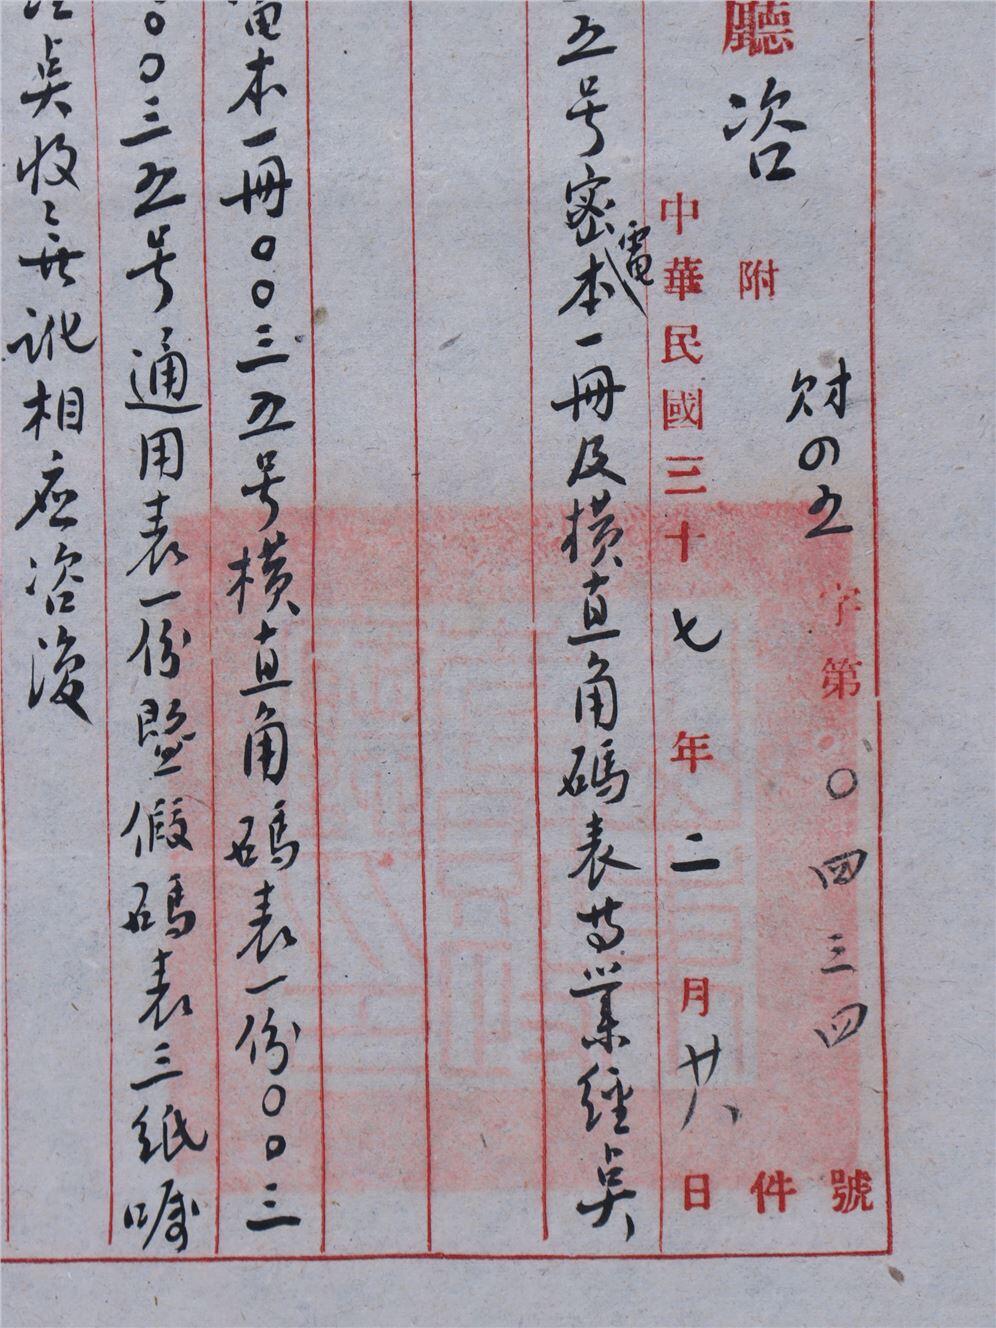 財四五字第〇四三四號
廳咨附件
中華民國三十七年二月廿八日
五号密電本一冊及橫直角碼表等業經奌
電本一冊〇〇三五号橫直角碼表一份〇〇三
〇〇三五号通用表一份暨假碼表三紙囑
奌收無訛相應咨復